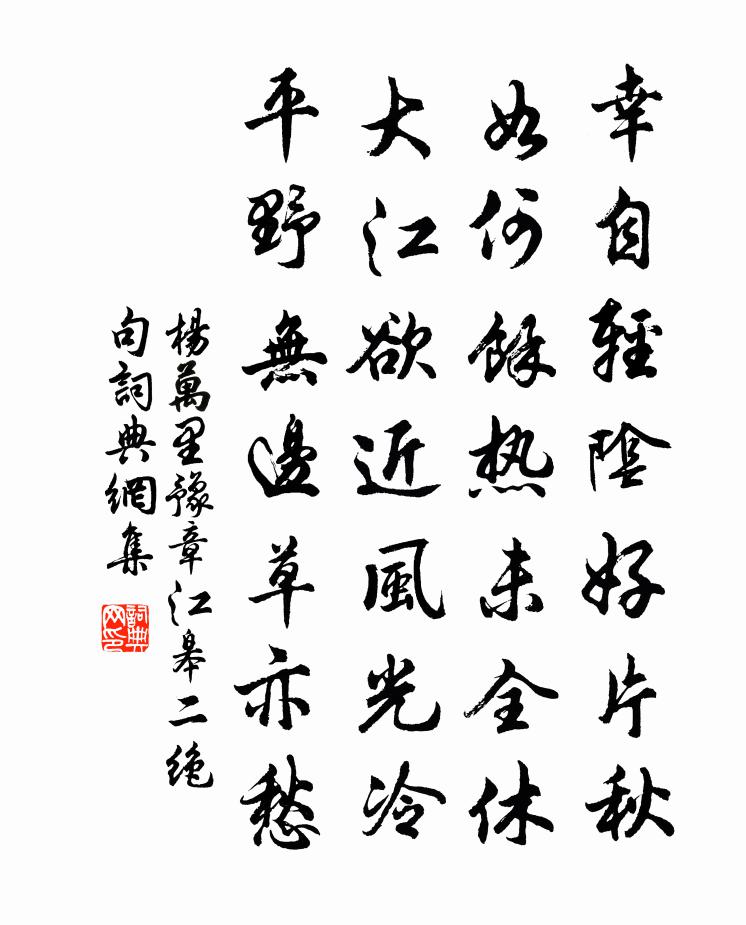 幸自輕陰好片秋
如何餘热未全休
大江欲近風光冷
平野無邊草亦愁
楊萬里豫章江皋二绝
句詞典網集
詞典网印